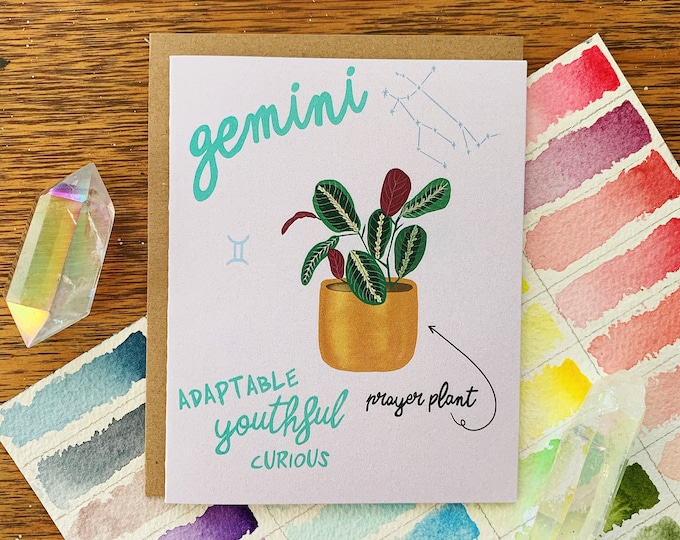 gemini
ADAPTABLE
youthful
CURIOUS
prayer plant